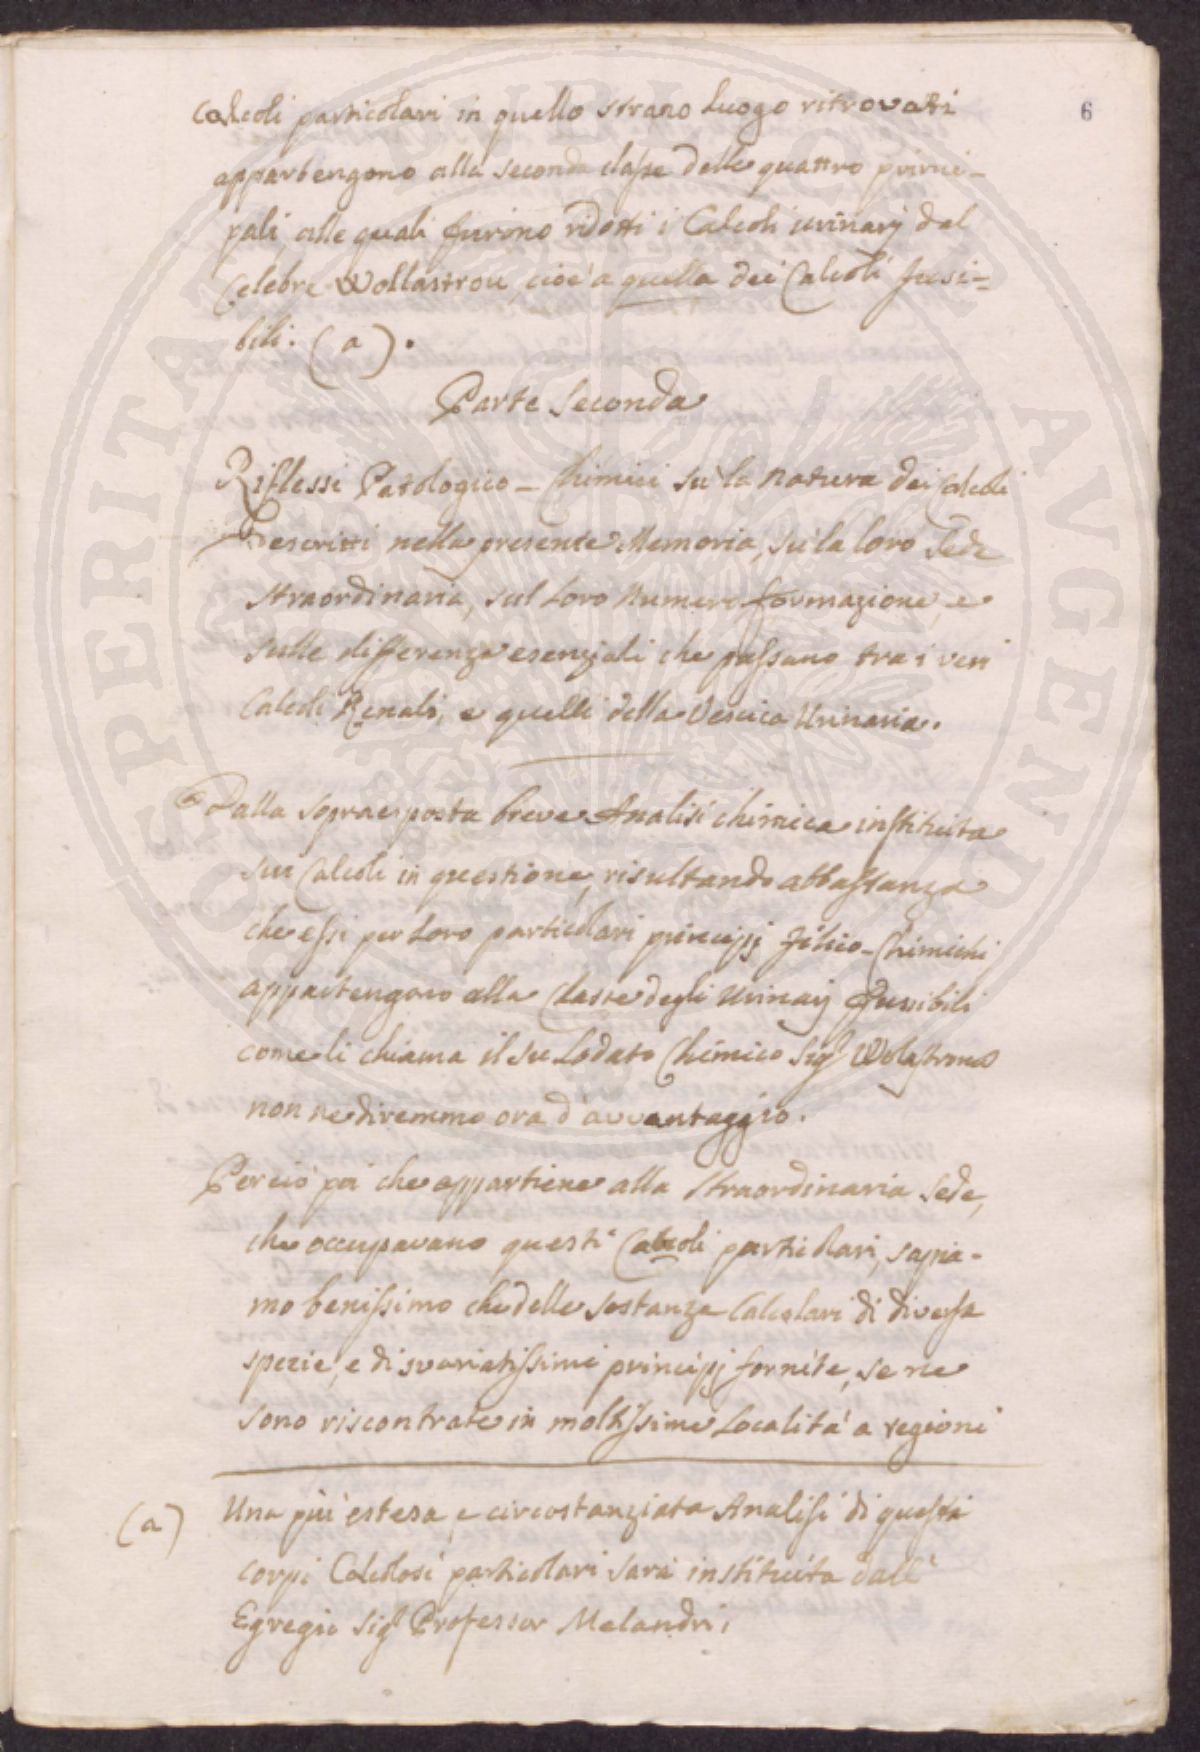 6
Calcoli particolari in quello strano Luogo ritrovati
appartengono alla seconda classe delle quattro princi-
pali, alle quali furono ridotti i Calcoli urinarj dal
Celebre Wollastrou, cioè a quella dei Calcoli fusi=
bili. (a).
Parte Seconda
Riflessi Patologico-Chimici sù la natura dei Calcoli
Descritti nella presente Memoria, sù la loro Sede
straordinaria, sul Loro Numero formazione, e
sulle differenze esenziali che passano tra i veri
Calcoli Renali, e quelli della Vescica Urinaria.
Dalla sopraesposta breve Analisi chimica instituita
sui Calcoli in questione, risultando abbastanza
che essi per Loro particolari principj Fisico-Chimichi
appartengono alla Classe degli Urinarj Fusibili
come li chiama il su Lodato Chimico Sigr Wolastrone
non ne diremmo ora d'avvantaggio.
Perciò poi che appartiene alla straordinaria Sede,
che occupavano questi Calcoli particolari, sapia-
mo benissimo che delle sostanze Calcolari di diversa
spezie, e di svariatissimi principj fornite, se ne
sono riscontrate in moltissime Località a regioni
(a) Una più estesa, e circostanziata Analisi di questi
corpi Calcolosi particolari sarà instituita dall'
Egregio Sigr Professor Melandri;
PROSPERITATI PVBLICAE AVGENDAE